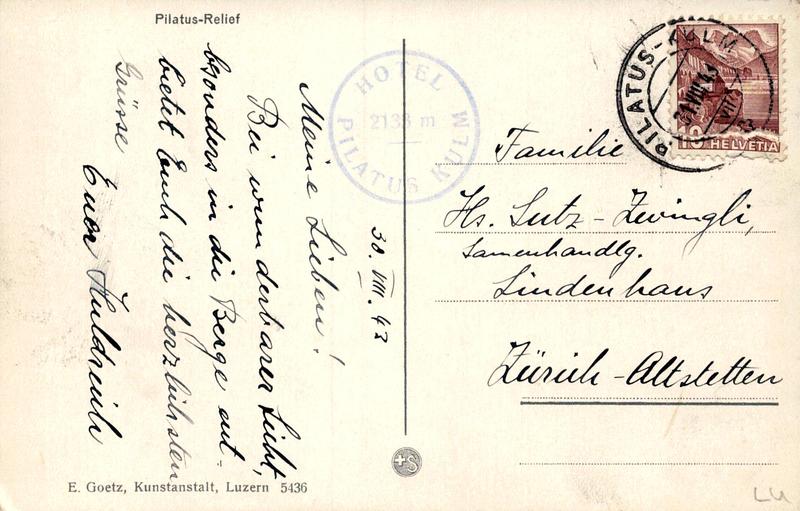 Pilatus-Relief
30. VIII. 43
Meine Lieben!
Bei wunderbarer Sicht,
bsonders in die Berge ent-
bietet Euch die herzlichsten
Grüsse
Euer Huldreich
HOTEL
2133 m
PILATUS KULM
PILATUS-KULM
VIII 43
10 HELVETIA
Familie
Hs. Sutz-Zwingli,
Samenhandlg.
Lindenhaus
Zürich-Altstetten
+S
E. Goetz, Kunstanstalt, Luzern 5436
LU